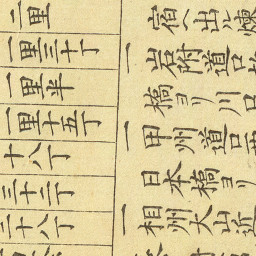 二里
一里三十丁
一里半
一里十五丁
十八丁
三十二丁
二十八丁
宿ヘ出ル
一岩附道口
橋ヨリ川口
一甲州道口西
日本橋ヨリ
一相州大山近